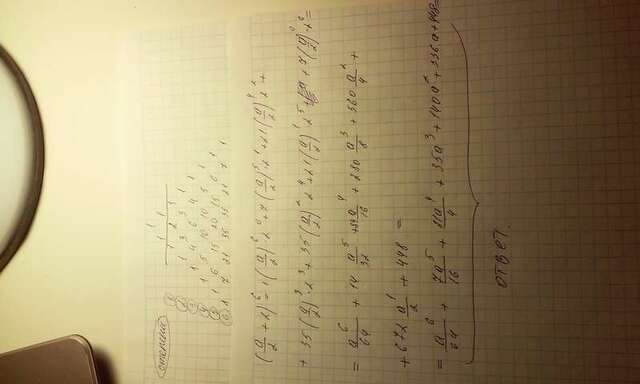 степени
1
1 1
1 2 1
1 3 3 1
1 4 6 4 1
1 5 10 10 5 1
1 6 15 20 15 6 1
1 7 21 35 35 21 7 1
(a/2 + 2)^6 = 1(a/2)^6 2^0 + 7(a/2)^5 2^1 + 21(a/2)^4 2^2 +
+ 35(a/2)^3 · 2^3 + 35(a/2)^2 2^4 + 21(a/2)^1 2^5 + 7(a/2)^0 2^6 =
= a^6/64 + 14 a^5/32 + 84 a^4/16 + 280 a^3/8 + 560 a^2/4 +
+ 672 a^1/2 + 448 =
= a^6/64 + 7a^5/16 + 21a^4/4 + 35a^3 + 140a^2 + 336a + 448 =
ответ.